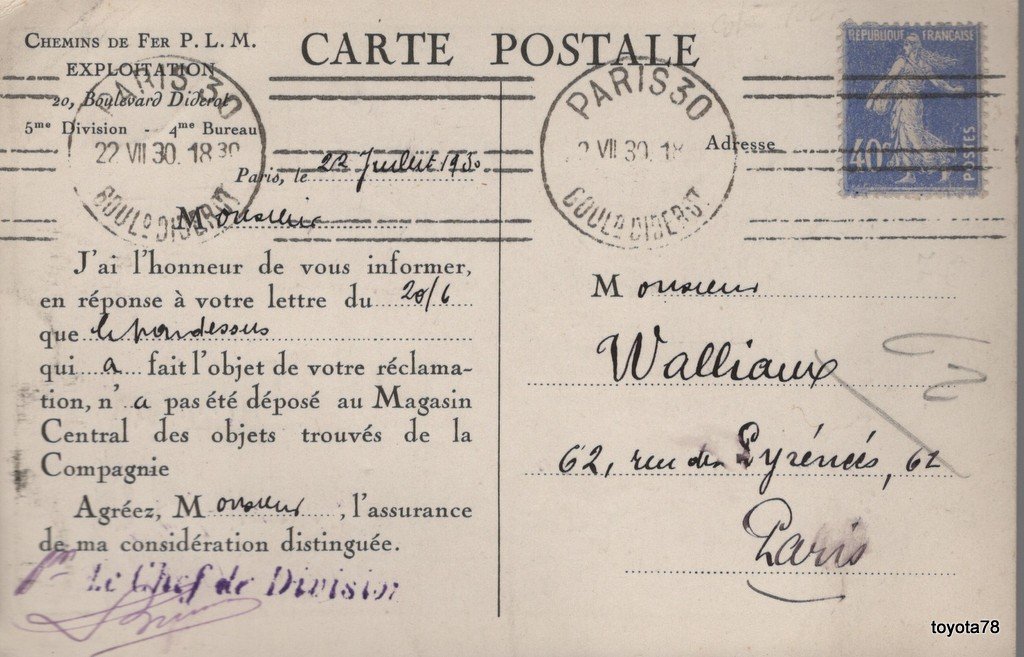 CHEMINS DE FER P. L. M.
EXPLOITATION
20, Boulevard Diderot
5me Division - 4me Bureau
CARTE POSTALE
PARIS 30
22 VII 30. 18 30
BOULD DIDEROT
PARIS 30
2 VII 30. 18
BOULD DIDEROT
RÉPUBLIQUE FRANÇAISE
40c
POSTES
Paris, le 22 Juillet 1930
Monsieur
J'ai l'honneur de vous informer,
en réponse à votre lettre du 20/6
que le pardessus
qui a fait l'objet de votre réclama-
tion, n'a pas été déposé au Magasin
Central des objets trouvés de la
Compagnie
Agréez, Monsieur, l'assurance
de ma considération distinguée.
Pr Le Chef de Division
Adresse
Monsieur
Walliaux
62, rue des Pyrénées, 62
Paris
toyota78